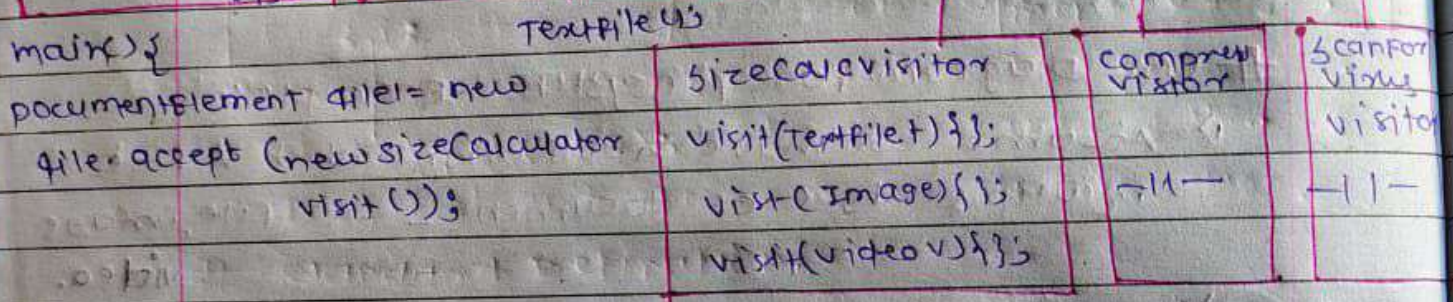 TextFile();
main() {
DocumentElement file1 = new
file.accept (new sizeCalculator
visit());
SizeCalcvisitor
visit(TextFile t) { };
visit( Image) { };
visit(video v) { };
compress
vistor
-11-
Scanfor
virus
visitor
-11-